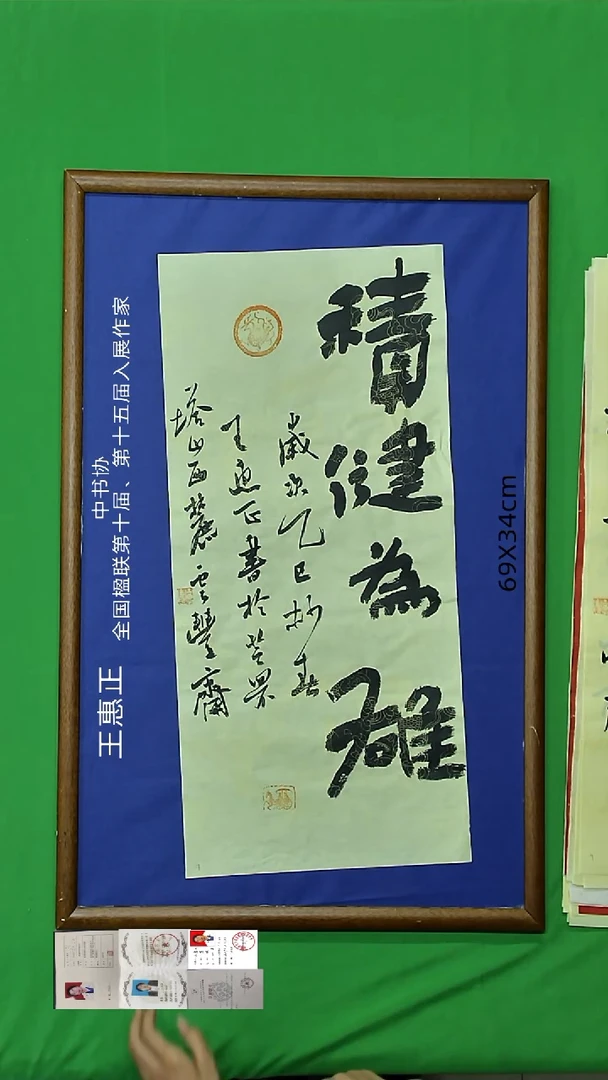 積健為雄
歲次乙巳抄春
王惠正書於芝罘
塔山西麓雲豐齋
王惠正
中书协
全国楹联第十届、第十五届入展作家
69X34cm